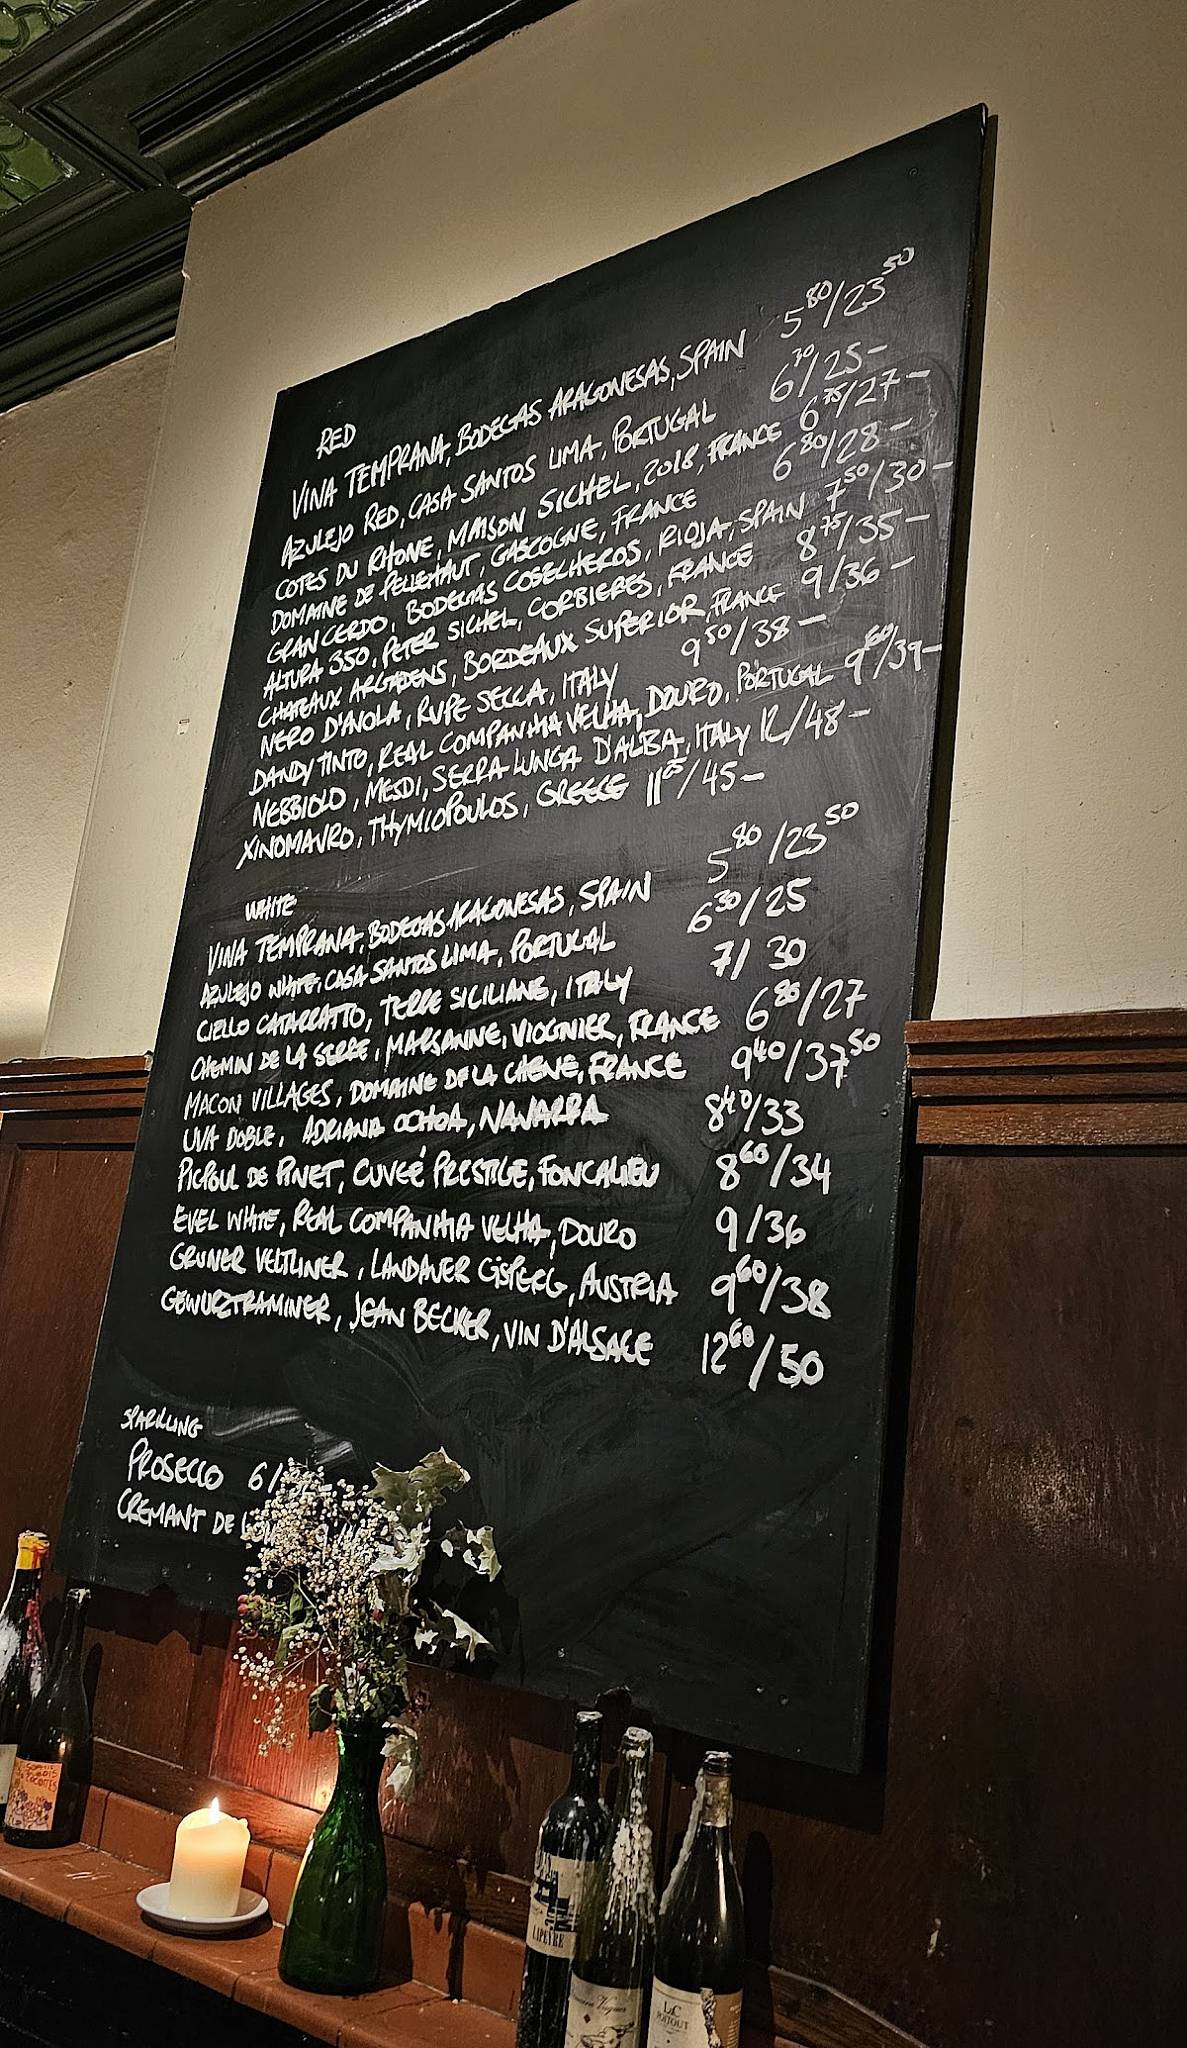 RED
VINA TEMPRANA, BODEGAS ARAGONESAS, SPAIN 5 80/23 50
AZULEJO RED, CASA SANTOS LIMA, PORTUGAL 6 30/25-
COTES DU RHONE, MAISON SICHEL, 2018, FRANCE 6 75/27-
DOMAINE DE PELLEHAUT, GASCOGNE, FRANCE 6 80/28-
GRAN CERDO, BODEGAS COSECHEROS, RIOJA, SPAIN 7 50/30-
ALTURA 350, PETER SICHEL, CORBIERES, FRANCE 8 75/35-
CHATEAUX ARGADENS, BORDEAUX SUPERIOR, FRANCE 9/36-
NERO D'AVOLA, RUPE SECCA, ITALY 9 50/38-
DANDY TINTO, REAL COMPANHIA VELHA, DOURO, PORTUGAL 9 60/39-
NEBBIOLO, MESDI, SERRALUNGA D'ALBA, ITALY 12/48-
XINOMAVRO, THYMIOPOULOS, GREECE 11 05/45-
WHITE
VINA TEMPRANA, BODEGAS ARAGONESAS, SPAIN 5 80/23 50
AZULEJO WHITE, CASA SANTOS LIMA, PORTUGAL 6 30/25
CIELLO CATARRATTO, TERRE SICILIANE, ITALY 7/30
CHEMIN DE LA SERRE, MARSANNE, VIOGNIER, FRANCE 6 80/27
MACON VILLAGES, DOMAINE DE LA CHENE, FRANCE 9 40/37 50
UVA DOBLE, ADRIANA OCHOA, NAVARRA 8 40/33
PICPOUL DE PINET, CUVEÉ PRESTIGE, FONCALIEU 8 60/34
EVEL WHITE, REAL COMPANHIA VELHA, DOURO 9/36
GRUNER VELTLINER, LANDAUER GISPERG, AUSTRIA 9 60/38
GEWURZTRAMINER, JEAN BECKER, VIN D'ALSACE 12 60/50
SPARKLING
PROSECCO 6/
CREMANT DE
LAPEYRE